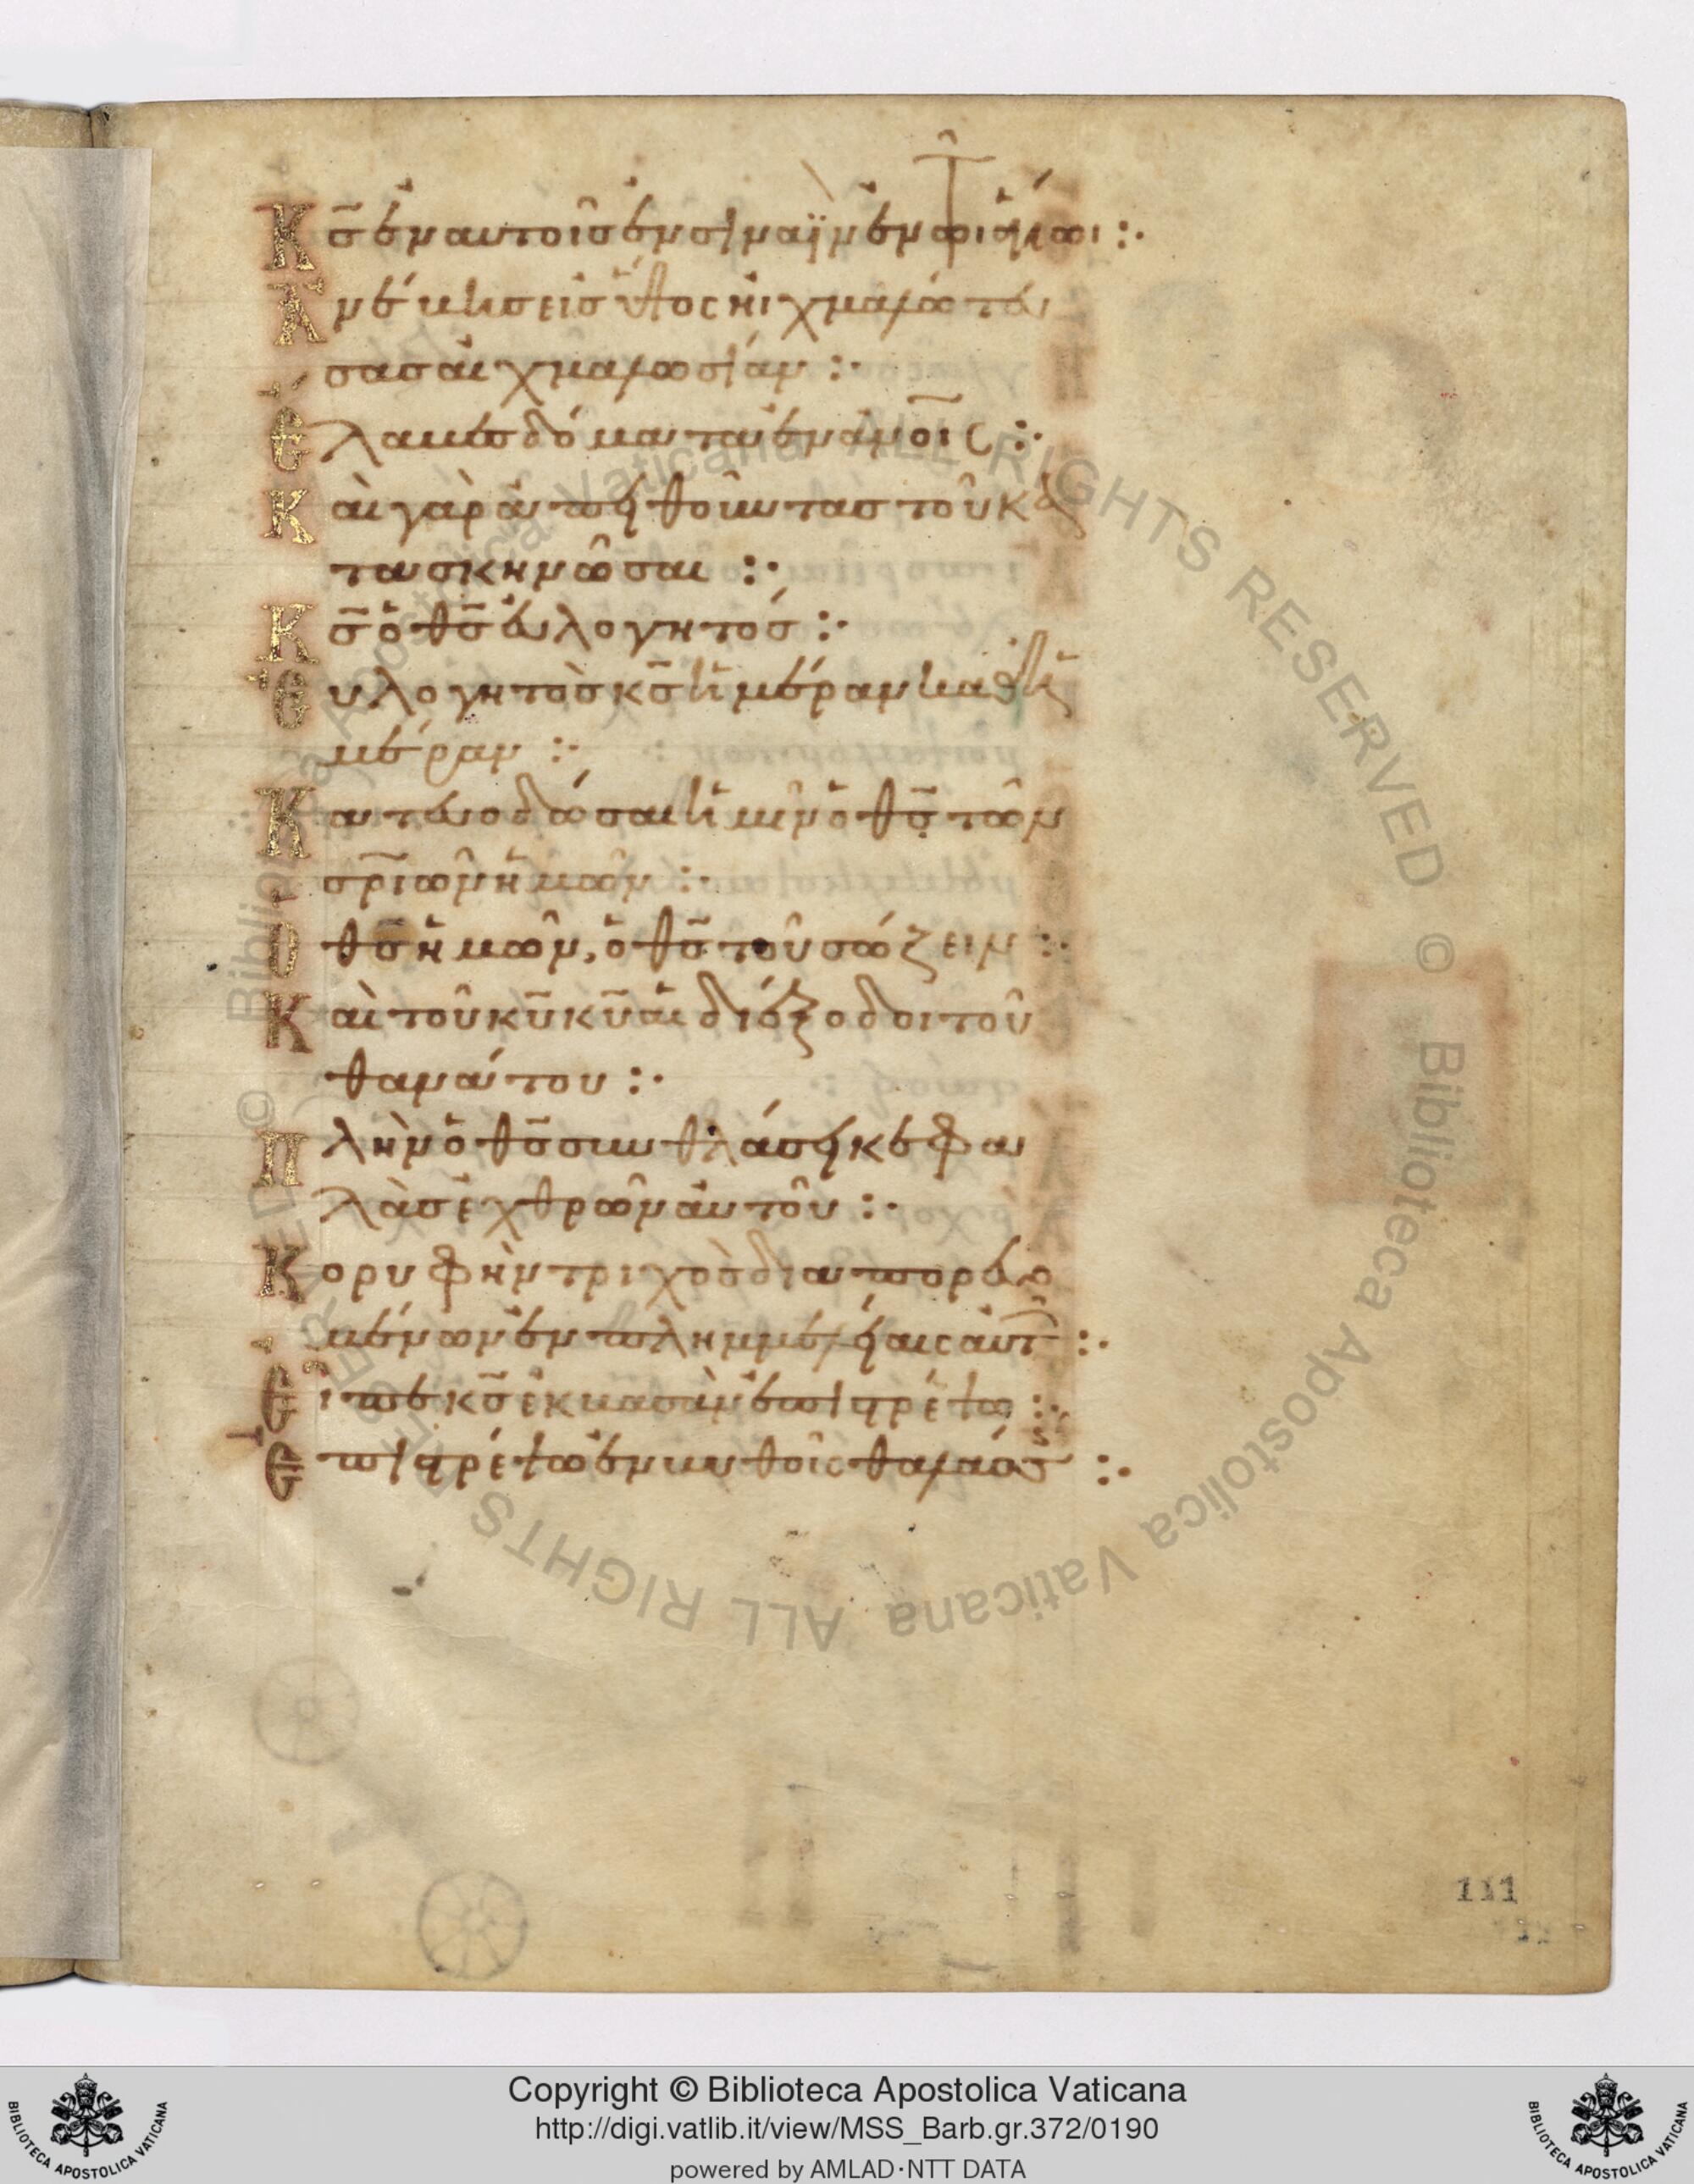 Κς̄ ἐν αυτοῖσ ἐν σιναϊ ἐν τῶ ἁγίωι :·
Ἀνέβησ εἰσ ὕψος ἠιχμαλώτευ
σασ αἰχμαλωσίαν :·
Ἔλαβεσ δόματα ἐν ἀνοῖς :·
Καὶ γὰρ ἀπειθοῦντασ τοῦ κα
τασκηνῶσαι :·
Κσ̄ ὁ θσ̄ εὐλογητόσ :·
Εὐλογητὸσ κσ̄ ἡμέραν καθ ἡ
μέραν :·
Κατευοδώσαι ἡμῖν ὁ θσ̄ τῶν
σρ̄ιῶν ἡμῶν :·
Ὁ θσ̄ ἡμῶν, ὁ θσ̄ τοῦ σώζειν :·
Καὶ τοῦ κῡ κῡ αἱ διέξοδοι τοῦ
θανάτου :·
Πλὴν ὁ θσ̄ συνθλάσει κεφα
λὰσ ἐχθρῶν αὐτοῦ :·
Κορυφὴν τριχὸσ διαπορευο
μένων ἐν πλημμελείαις αὐτ :·
Εἶπε κσ̄ ἐκ βασὰν ἐπιστρέψω :·
Ἐπιστρέψω ἐν βυθοῖς θαλάσσ :·
111
Copyright © Biblioteca Apostolica Vaticana
http://digi.vatlib.it/view/MSS_Barb.gr.372/0190
powered by AMLAD·NTT DATA
BIBLIOTECA APOSTOLICA VATICANA
BIBLIOTECA APOSTOLICA VATICANA
© Biblioteca Apostolica Vaticana ALL RIGHTS RESERVED © Biblioteca Apostolica Vaticana ALL RIGHTS RESERVED